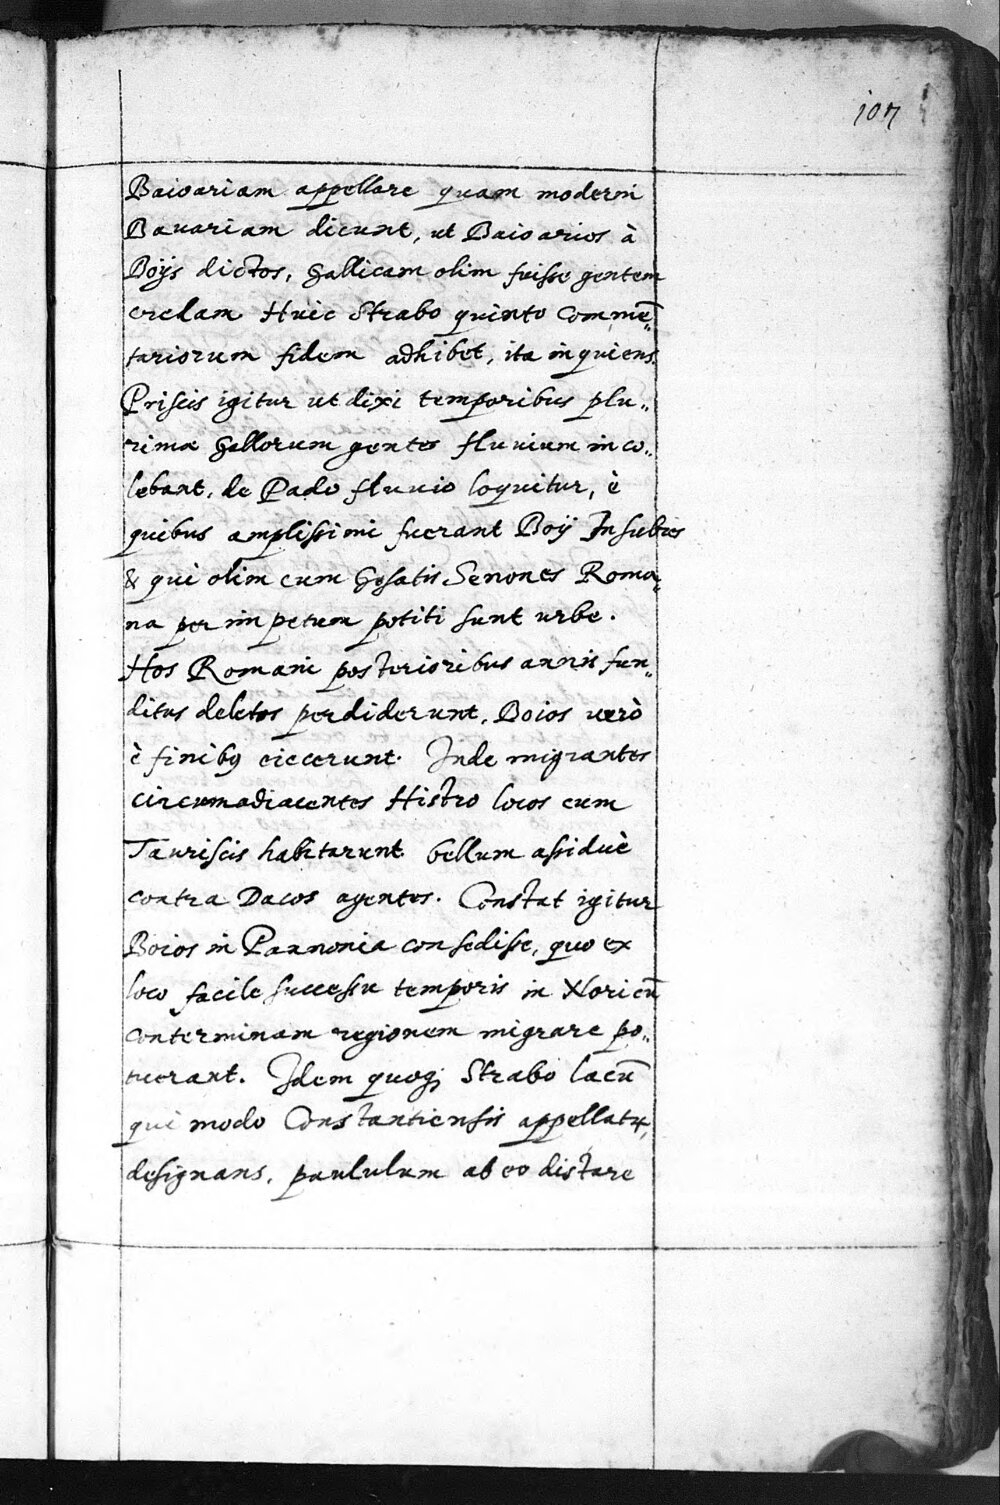 107
Baioariam appellare quam moderni
Bavariam dicunt, ut Baioarios à
Boÿs dictos, Gallicam olim fuisse gentem
credam Huic Strabo quinto Comme̅„
tariorum fidem adhibet, ita inquiens.
Priscis igitur ut dixi temporibus plu„
rima Gallorum gentes fluvium inco„
lebant, de Pado fluvio loquitur, è
quibus amplissimi fuerant Boÿ Insubres
& qui olim cum Gesatis Senones Roma„
na per impetum potiti sunt urbe.
Hos Romani posterioribus annis fun„
ditus deletos perdiderunt, Boios verò
è finibꝫ eiecerunt. Inde migrantes
circumadiacentes Histro locos cum
Tauriscis habitarunt bellum assiduè
contra Dacos agentes. Constat igitur
Boios in Pannonia consedisse, quo ex
loco facile successu temporis in Noricu̅
conterminam regionem migrare po„
tuerant. Idem quoqꝫ Strabo lacu̅
qui modo Constantiensis appellatꝛ,
designans, paululum ab eo distare